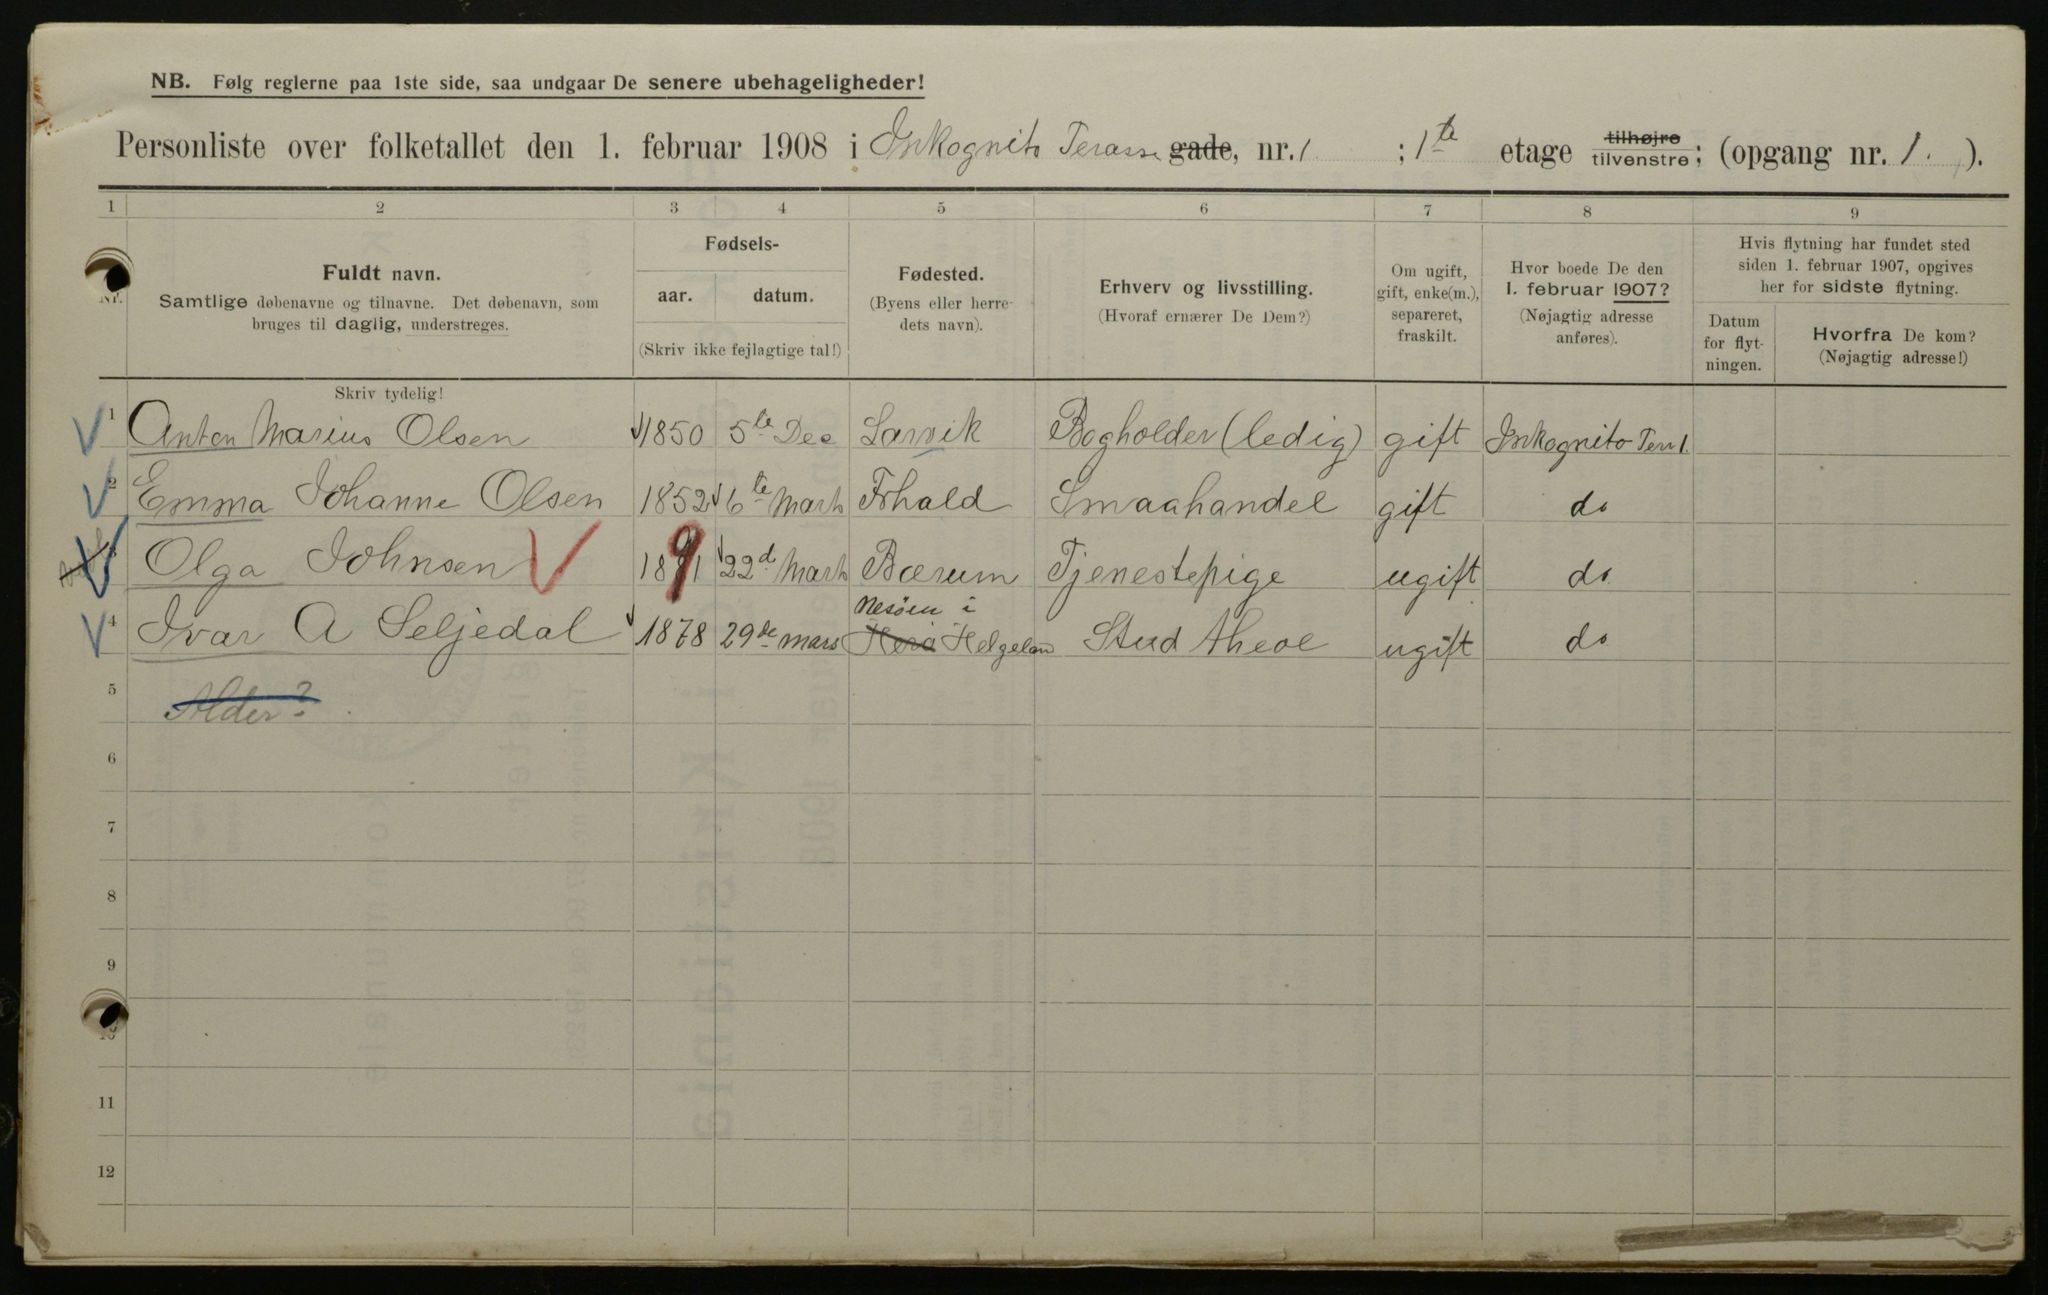 NB. Følg reglerne paa 1ste side, saa undgaar De senere ubehageligheder!
Personliste over folketallet den 1. februar 1908 i Inkognito Terasse gade, nr. 1 ; 1te etage tilhøjre tilvenstre; (opgang nr. 1. ).
1 2 3 4 5 6 7 8 9
Nr.
Fuldt navn.
Samtlige døbenavne og tilnavne. Det døbenavn, som
bruges til daglig, understreges.
Skriv tydelig!
Fødsels-
aar. datum.
(Skriv ikke fejlagtige tal!)
Fødested.
(Byens eller herre-
dets navn).
Erhverv og livsstilling.
(Hvoraf ernærer De Dem?)
Om ugift,
gift, enke(m.),
separeret,
fraskilt.
Hvor boede De den
1. februar 1907?
(Nøjagtig adresse
anføres).
Hvis flytning har fundet sted
siden 1. februar 1907, opgives
her for sidste flytning.
Datum
for flyt-
ningen.
Hvorfra De kom?
(Nøjagtig adresse!)
1 Anton Marius Olsen 1850 5te Dec Larvik Bogholder (ledig) gift Inkognito Terr 1.
2 Emma Johanne Olsen 1852 6te Marts Frhald Smaahandel gift do
3 Olga Johnsen 1891 22d Marts Bærum Tjenestepige ugift do
Nesøen i
4 Ivar A Seljedal 1878 29de mars Herø Helgeland Stud theol ugift do
5
Alder?
6
7
8
9
10
11
12